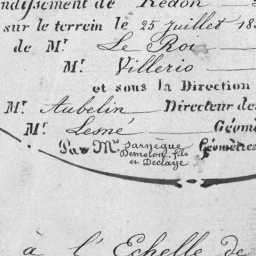 ndissement de Redon
sur le terrein le 25 juillet 18
de Mr. Le Roi
Mr. Villerio
et sous la Direction
Mr. Aubelin Directeur des
Mr. Lesné Géom
Par Mrs. Demolon, fils Géomètres
et Decläye
à l'Echelle de